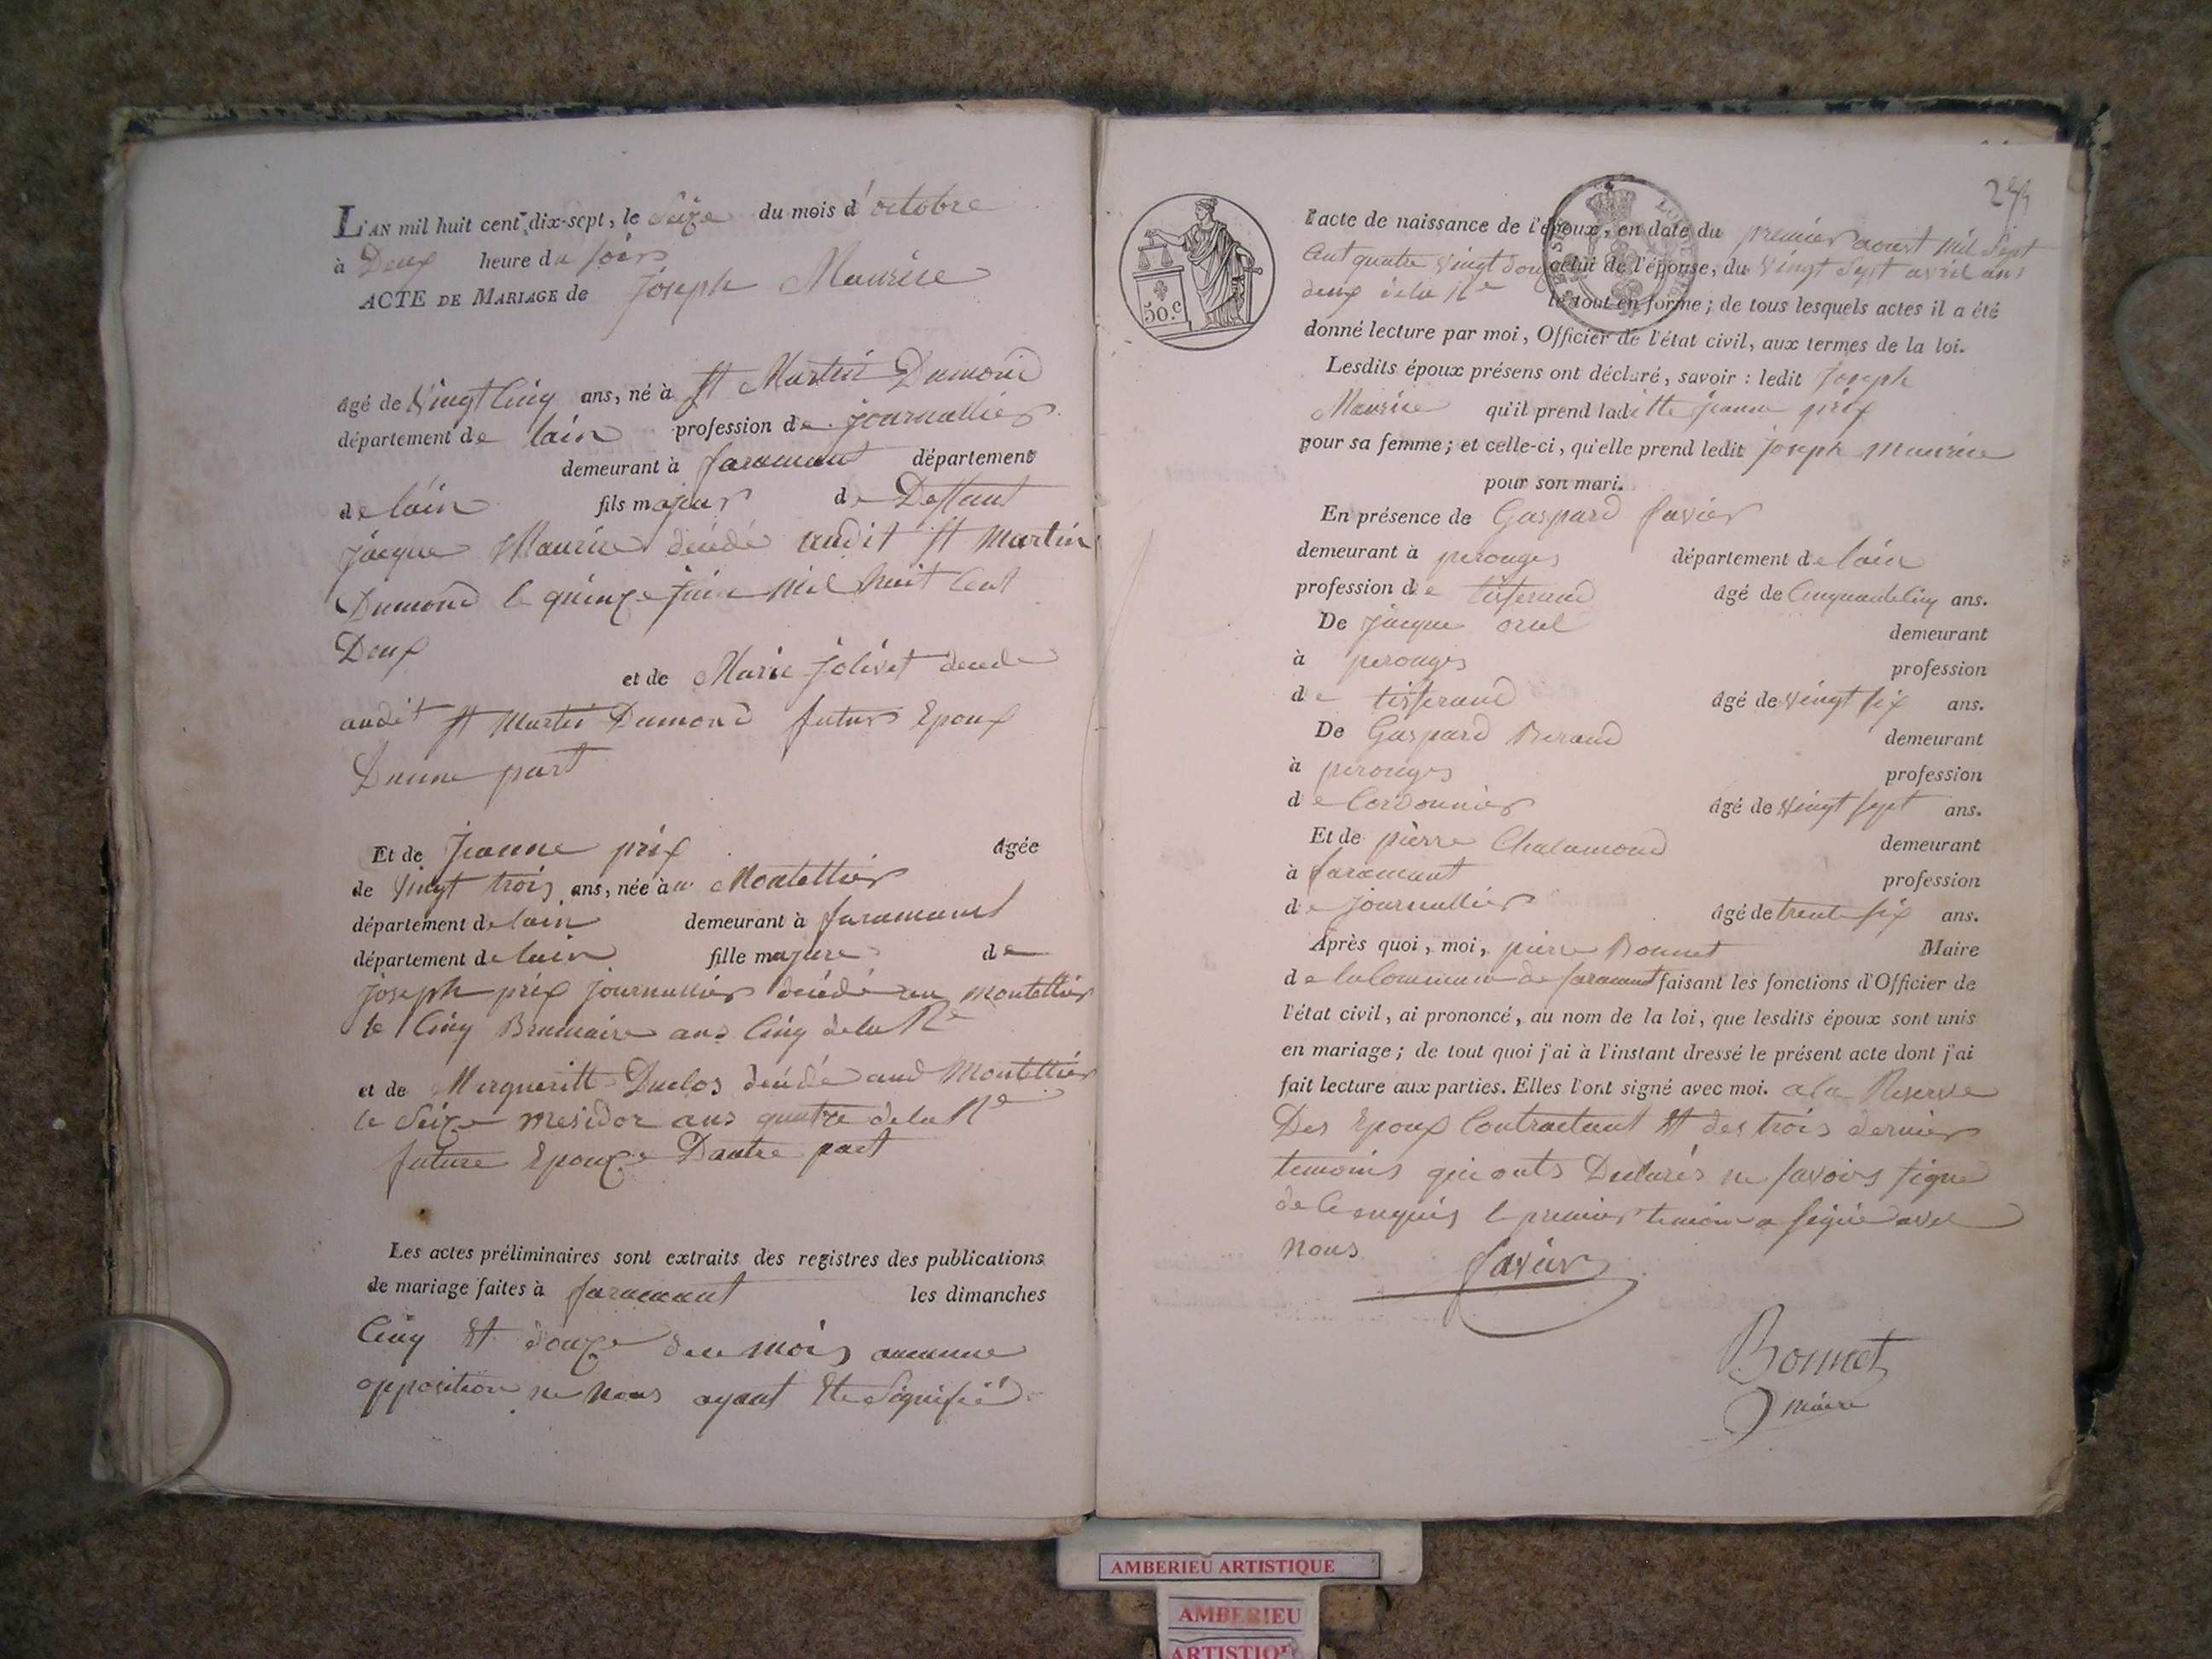 L'AN mil huit cent dix-sept, le Seize du mois d'octobre
à Deux heure du soir
ACTE DE MARIAGE de Joseph Maurice
âgé de vingt Cinq ans, né à St Martin Dumond
département de lain profession de journallier
demeurant à faramant département
de lain fils majeur de Deffunt
jacque Maurice décédé audit St Martin
Dumond le quinze juin mil huit Cent
Deux
et de Marie jolivet décédé
audit St Martin Dumond futur Epoux
Dunne part
Et de Jeanne prix âgée
de vingt trois ans, née à Montellier
département de lain demeurant à faramant
département de lain fille majure de
joseph prix journallier décédé au montellier
le Cinq Brumaire ans Cinq dela Re
et de Margueritte Duclos décédé aud Montellier
le Seize mesidor ans quatre dela Re
future Epouze Dautre part
Les actes préliminaires sont extraits des registres des publications
de mariage faites à faramant les dimanches
Cinq Et douze du mois aucunne
opposition ne nous ayant Eté Signifié
254
l'acte de naissance de l'époux, en date du premier aoust mil Sept
Cent quatre vingt douze celui de l'épouse, du vingt Sept avril ans
deux dela Re le tout en forme; de tous lesquels actes il a été
donné lecture par moi, Officier de l'état civil, aux termes de la loi.
50.c
Lesdits époux présens ont déclaré, savoir: ledit Joseph
Maurice qu'il prend laditte jeanne prix
pour sa femme; et celle-ci, qu'elle prend ledit joseph maurice
pour son mari.
En présence de Gaspard favier
demeurant à perouges département de lain
profession de tisserand âgé de Cinquante Cinq ans.
De jacque oral demeurant
à perouges profession
de tisserand âgé de vingt six ans.
De Gaspard Beraud demeurant
à perouges profession
de Cordonnier âgé de vingt sept ans.
Et de pierre Chalamond demeurant
à faramant profession
de journallier âgé de trente six ans.
Après quoi, moi, pierre Bonnet Maire
de la Commune de faramant faisant les fonctions d'Officier de
l'état civil, ai prononcé, au nom de la loi, que lesdits époux sont unis
en mariage; de tout quoi j'ai à l'instant dressé le présent acte dont j'ai
fait lecture aux parties. Elles l'ont signé avec moi. a la Reserve
Des Epoux Contractant Et des trois dernier
temoins qui onts Declarés ne savoir signé
de Ce enquis le premier temoin a signé avec
nous favier
Bonnet
maire
AMBERIEU ARTISTIQUE
AMBERIEU
ARTISTIQUE